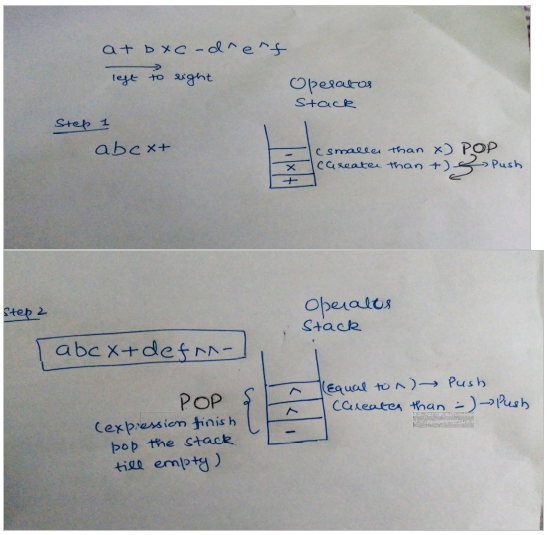 a + b × c - d ^ e ^ f
left to right
Operator
Stack
Step 1
abc×+
- (smaller than ×) POP
× (Greater than +) → Push
+
Step 2
Operator
Stack
abc×+def^^-
^ (Equal to ^) → Push
^ (Greater than -) → Push
-
POP
(expression finish
pop the stack
till empty)